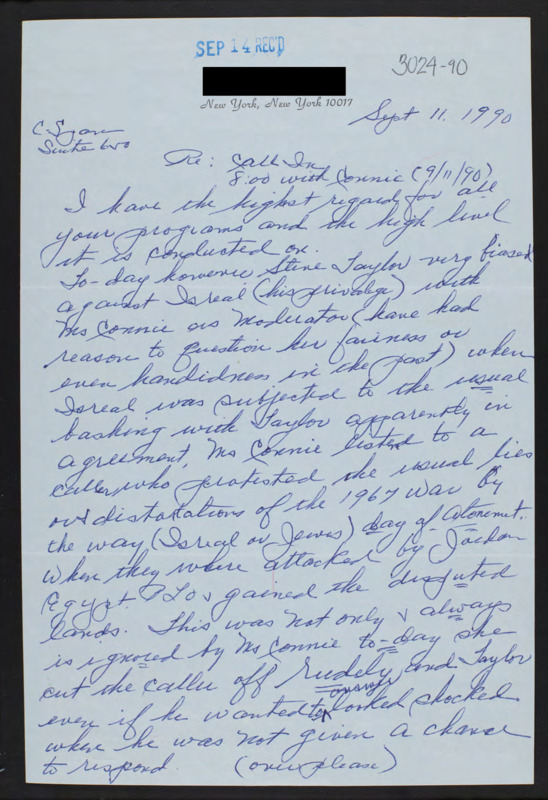 SEP 14 REC'D
3024-90
New York, New York 10017
Sept 11. 1990
C Span
Suite 650
Re: Call In
8:00 with Connie (9/11/90)
I have the highest regard for all
your programs and the high level
it is conducted on.
To-day however Steve Taylor very biased
against Isreal (his privalege) with
Ms Connie as Moderator (have had
reason to question her fairness or
even handidness in the past) when
Isreal was subjected to the usual
bashing with Taylor apparently in
agreement, Ms Connie listend to a
caller, who protested the usual lies
or distortations of the 1967 War by
the way (Isreal or Jewes) day of Atonemt.
When they where attacked by Jordan
Egypt & gained the disputed
lands. This was not only & always
is ignored by Ms Connie to-day she
cut the caller off rudely and Taylor
even if he wanted to answer looked shocked
when he was not given a chance
to respond (over please)